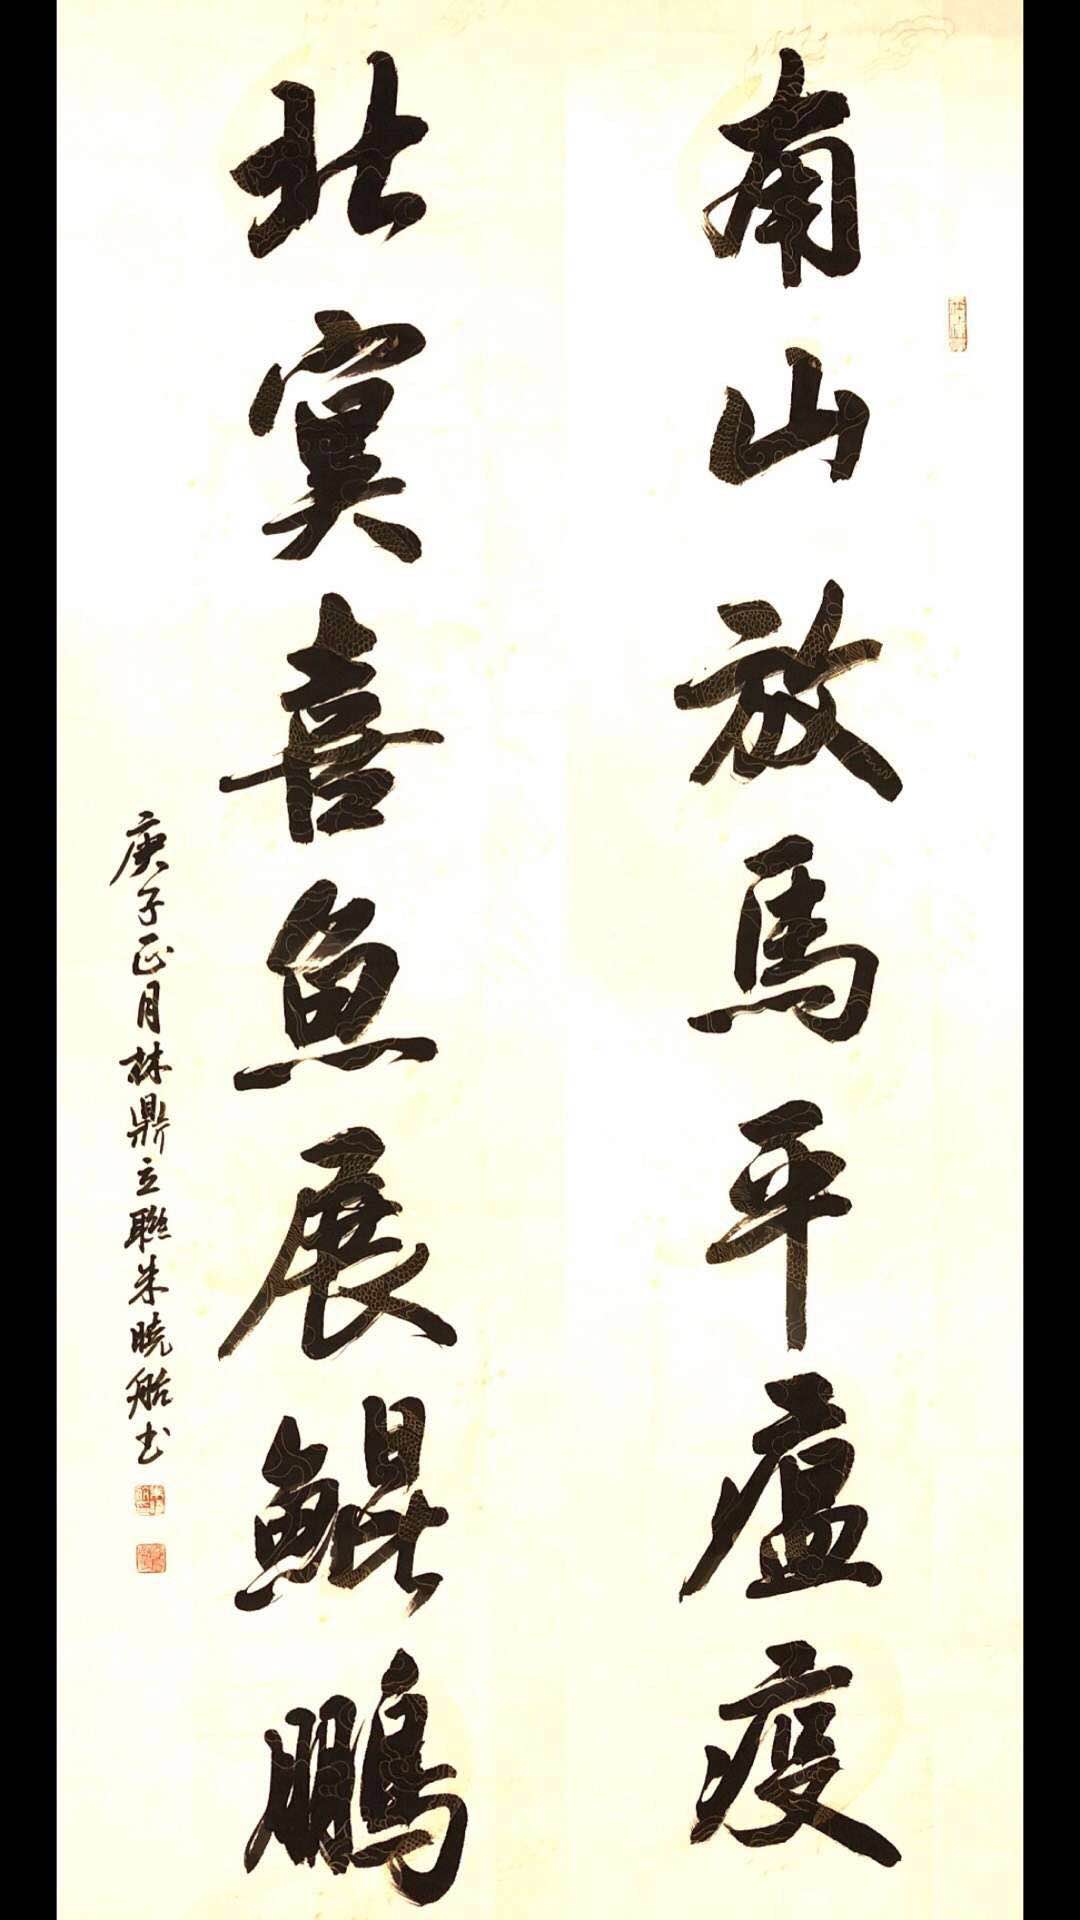 南山放馬平瘟疫
北冥喜魚展鯤鵬
庚子正月林鼎立聯朱曉船書